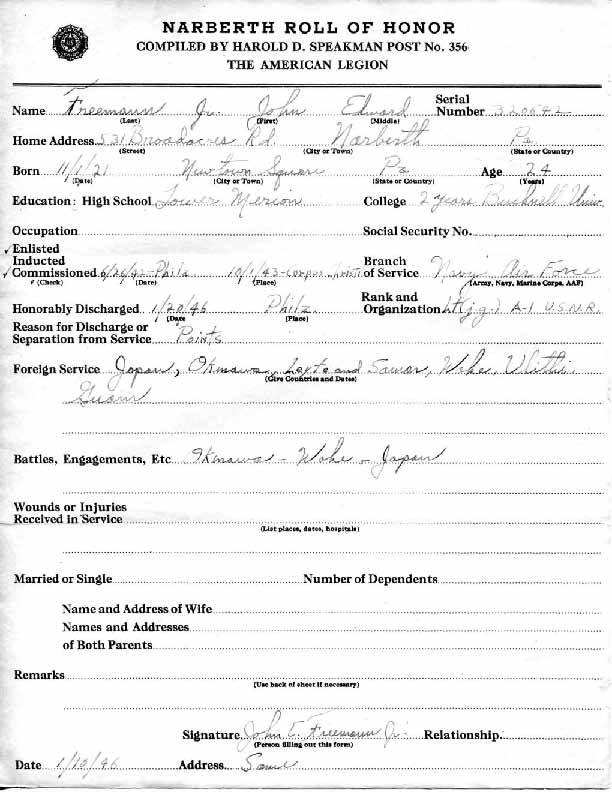 NARBERTH ROLL OF HONOR
COMPILED BY HAROLD D. SPEAKMAN POST No. 356
THE AMERICAN LEGION
Name Freemann Jr. John Edward Serial Number 320642
(Last) (First) (Middle)
Home Address 531 Broadacres Rd. Narberth Pa
(Street) (City or Town) (State or Country)
Born 11/1/21 Newtown Square Pa Age 24
(Date) (City or Town) (State or Country) (Years)
Education: High School Lower Merion College 2 years Bucknell Univ
Occupation Social Security No.
Enlisted
Inducted Branch
Commissioned 6/26/42-Phila 10/1/43-Corpus Christi of Service Navy Air Force
(Check) (Date) (Place) (Army, Navy, Marine Corps, AAF)
Honorably Discharged 1/20/46 Phila Rank and Organization Lt(j.g.) A-1 U.S.N.R.
(Date (Place)
Reason for Discharge or
Separation from Service Points
Foreign Service Japan, Okinawa, Leyte and Samar, Wake, Ulithi
(Give Countries and Dates)
Guam
Battles, Engagements, Etc Okinawa - Wake - Japan
Wounds or Injuries
Received in Service
(List places, dates, hospitals)
Married or Single Number of Dependents
Name and Address of Wife
Names and Addresses
of Both Parents
Remarks
(Use back of sheet if necessary)
Signature John E. Freemann Jr. Relationship
(Person filling out this form)
Date 1/10/46 Address Same